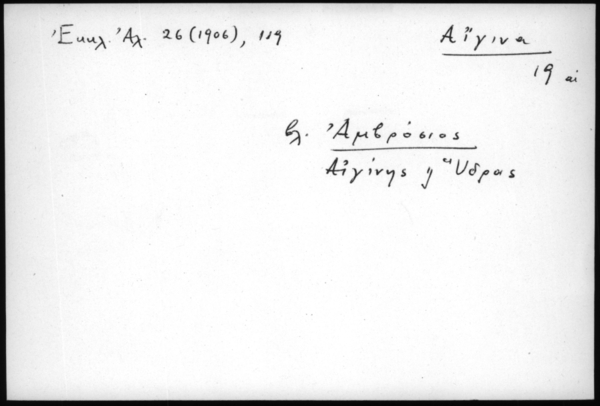 Ἐκκλ. Ἀλ. 26 (1906), 119
Αἴγινα
19 αἰ
βλ. Ἀμβρόσιος
Αἰγίνης ἢ Ὕδρας